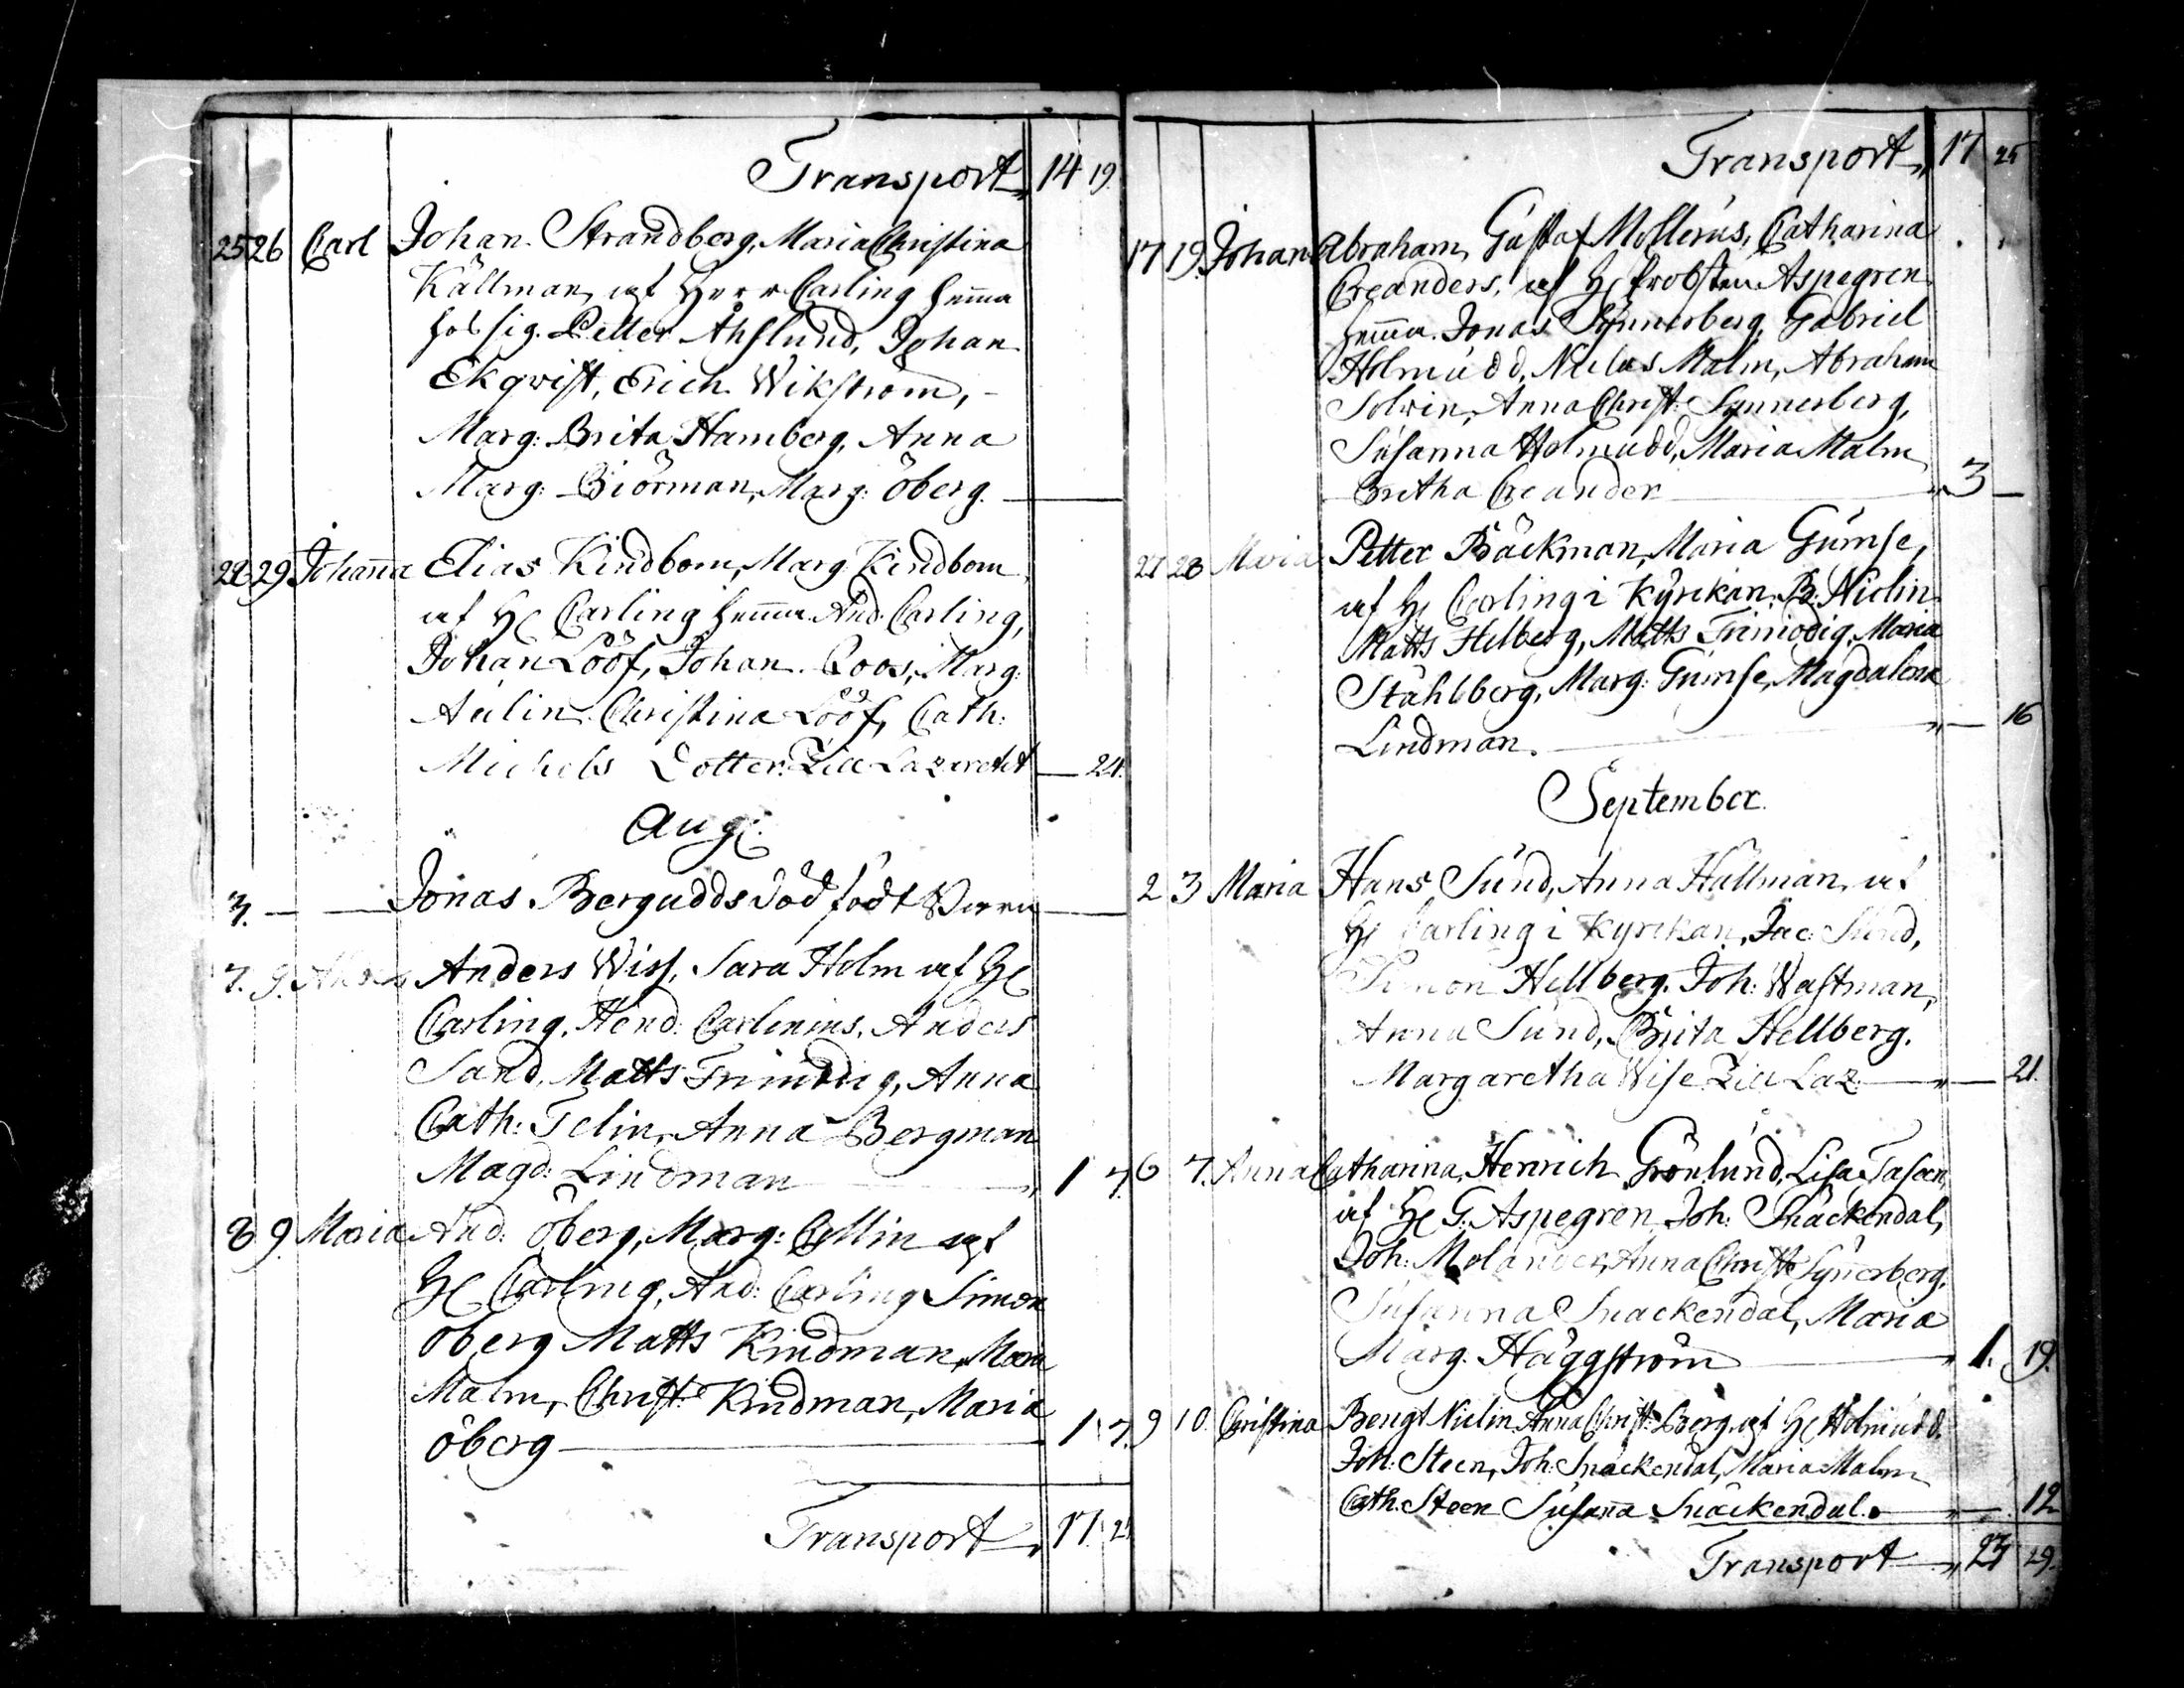 Transport 14 19.
25 26 Carl Johan Strandberg, Maria Christina
Källman, af Herr Carling hemma
hos sig. Petter Åhslund, Johan
Ekqvist, Erich Wikström, -
Marg: Brita Hamberg, Anna
Marg: Biörman, Marg: Öberg.
29 Johanna Elias Kindbom, Marg Kindbom
af H Carling hemma And. Carling,
Johan Lööf, Johan Roos, Marg:
Aulin Christina Lööf, Cath:
Michels Dotter. Till Lazarettet — 24.
Aug:
3. — — Jonas Bergudds död född Barn
7. 9. Anders Wiss, Sara Holm af H
Carling, Hend: Carlenius, Anders
Sand, Matts Trimodig, Anna
Cath: Telin, Anna Bergman
Magd: Lindman 1 7.
8 9. Maria And: Öberg, Marg: Collin af
H Carling, And: Carling Simon
Öberg Matts Kindman, Maria
Malm, Christ: Kindman, Maria
Öberg — 1 7.
Transport 17. 25
Transport 17 25
17 19. Johan Abraham, Gustaf Mollerus, Catharina
Creanders, af H Probsten Aspegren
hemma. Jonas Synnerberg, Gabriel
Holmudd, Niclas Malm, Abraham
Solvin, Anna Christ: Synnerberg,
Susanna Holmudd, Maria Malm
Bretha Creander 3 —
27 28 Maria Petter Bäckman, Maria Gumse,
af H Carling i Kyrckan. B: Niclin
Matts Helberg, Matts Trimodig, Maria
Ståhlberg, Marg: Gumse, Magdalena
Lindman. — 16
September
2 3 Maria Hans Sund, Anna Hällman af
H Carling i Kyrckan, Jac: Sund,
Simon Hellberg. Joh: Wastman,
Anna Sund, Brita Hellberg.
Margaretha Wise Till Laz: — 21.
6 7. Anna Catharina, Henrich Grönlund, Lisa
af H G: Aspegren, Joh: Snäckendal,
Joh: Molander, Anna Christ: Synerberg,
Susanna Snackendal, Maria
Marg. Häggström 1. 19.
9 10. Christina Bengt Niclin Anna Christ: Berg, af H Holmudd.
Joh: Steen, Joh: Snäckendal, Maria Malm
Cath: Steen Susana Snäckendal. — 12
Transport 23 29.